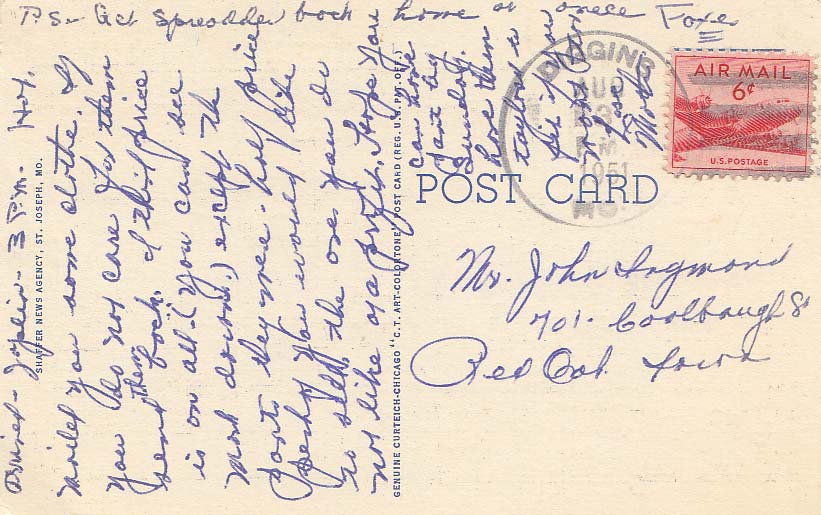 P.S. Get Spreader back home at once Foxe
Arrived - Joplin - 3 P.m. Hot.
Mailed you some clothe. If
you do not care for them
send them back. 1 third price
is on all (you can see
mark downs) except the
pants they were half price
Perhaps you would like
to sell the ones you do
not like at a profit. Hope you
can come
Sunday.
have them
taylored to
fit if you
Love
Mother
SHAFFER NEWS AGENCY, ST. JOSEPH, MO.
GENUINE CURTEICH-CHICAGO "C.T. ART-COLORTONE" POST CARD (REG. U.S. PAT. OFF.)
POST CARD
DIGGINS
AUG
3
PM
1951
MO.
AIR MAIL
6¢
U.S. POSTAGE
Mr. John Ingmand
701 - Coolbaugh St
Red Oak, Iowa